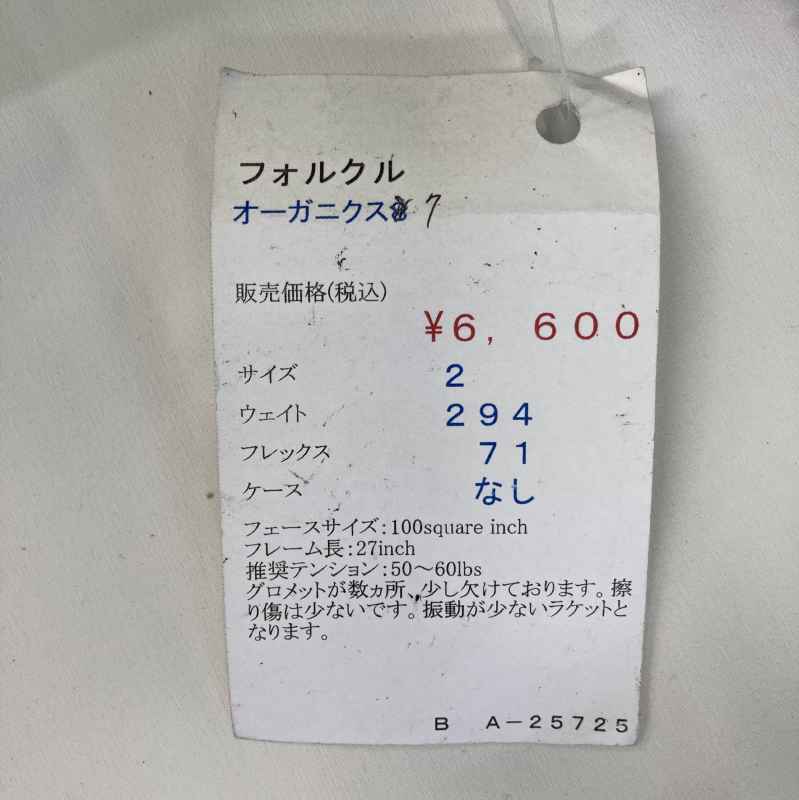 フォルクル
オーガニクス 7
販売価格(税込)
¥6,600
サイズ 2
ウェイト 294
フレックス 71
ケース なし
フェースサイズ:100square inch
フレーム長:27inch
推奨テンション:50~60lbs
グロメットが数ヵ所、少し欠けております。擦
り傷は少ないです。振動が少ないラケットと
なります。
B A-25725